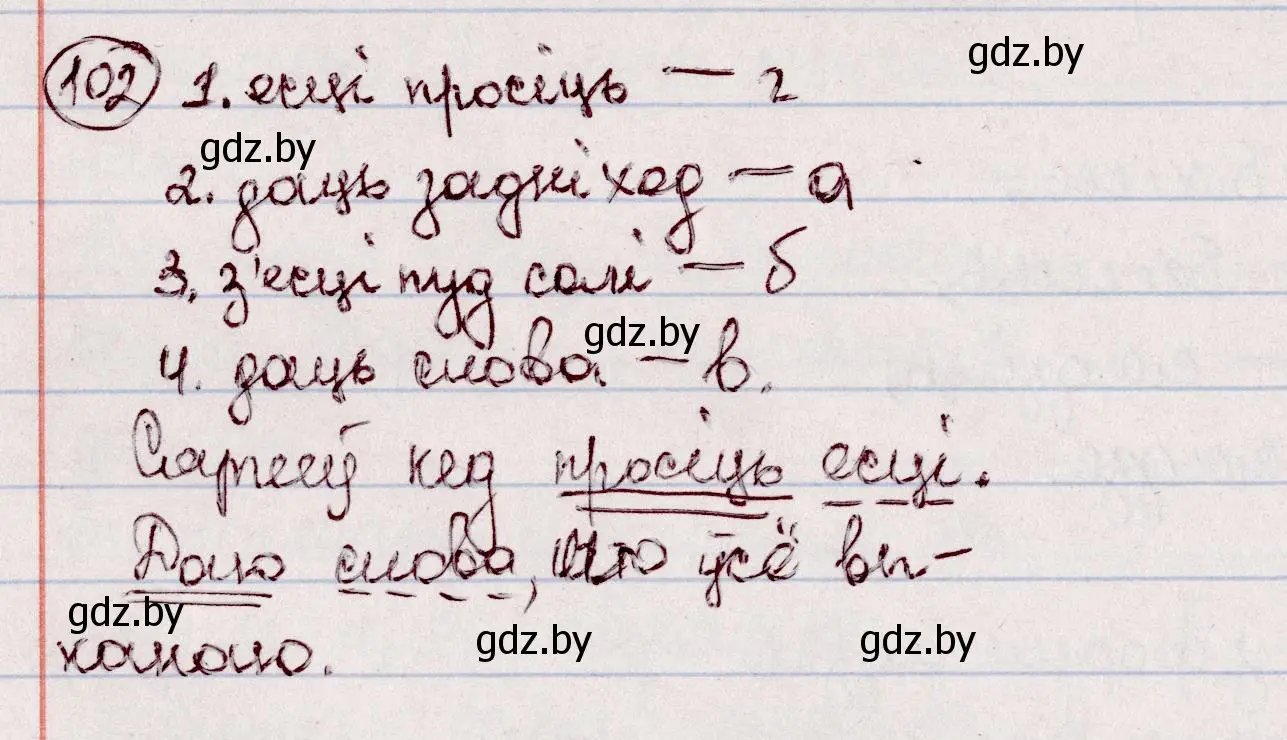 102 1. есці просіць — г
gdz.by
gdz.by
2. даць задні ход — а
3. з'есці пуд солі — б
gdz.by
4. даць слова — в.
кед просіць есці.
Даю слова, што ўсё вы-
gdz.by
канаю.
gdz.by
gdz.by